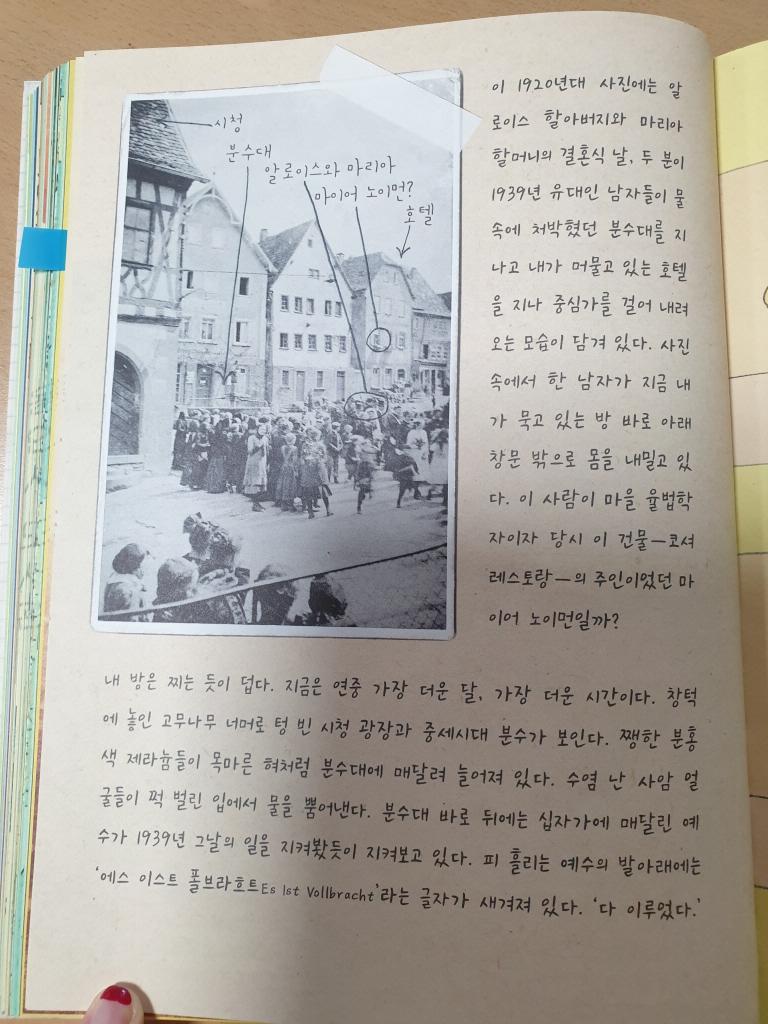 시청
분수대
알로이스와 마리아
마이어 노이먼?
호텔
이 1920년대 사진에는 알
로이스 할아버지와 마리아
할머니의 결혼식 날, 두 분이
1939년 유대인 남자들이 물
속에 처박혔던 분수대를 지
나고 내가 머물고 있는 호텔
을 지나 중심가를 걸어 내려
오는 모습이 담겨 있다. 사진
속에서 한 남자가 지금 내
가 묵고 있는 방 바로 아래
창문 밖으로 몸을 내밀고 있
다. 이 사람이 마을 율법학
자이자 당시 이 건물—코셔
레스토랑—의 주인이었던 마
이어 노이먼일까?
내 방은 찌는 듯이 덥다. 지금은 연중 가장 더운 달, 가장 더운 시간이다. 창턱
에 놓인 고무나무 너머로 텅 빈 시청 광장과 중세시대 분수가 보인다. 쨍한 분홍
색 제라늄들이 목마른 혀처럼 분수대에 매달려 늘어져 있다. 수염 난 사암 얼
굴들이 쩍 벌린 입에서 물을 뿜어낸다. 분수대 바로 뒤에는 십자가에 매달린 예
수가 1939년 그날의 일을 지켜봤듯이 지켜보고 있다. 피 흘리는 예수의 발아래에는
‘에스 이스트 폴브라흐트Es Ist Vollbracht’라는 글자가 새겨져 있다. ‘다 이루었다.’